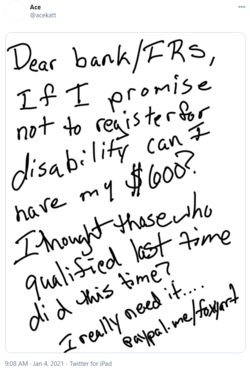 Ace
@acekatt
Dear bank/IRS,
If I promise
not to register for
disability can I
have my $600?
I thought those who
qualified last time
did this time?
I really need it....
paypal.me/foxyort
9:08 AM · Jan 4, 2021 · Twitter for iPad